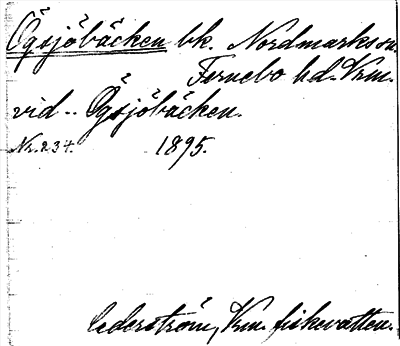 Ögsjöbäcken bk. Nordmarks sn.
Fernebo hd. Vrm.
vid .. Ögsjöbäcken.
Nr. 234. 1895.
Cederström, Vrm. fiskevatten.